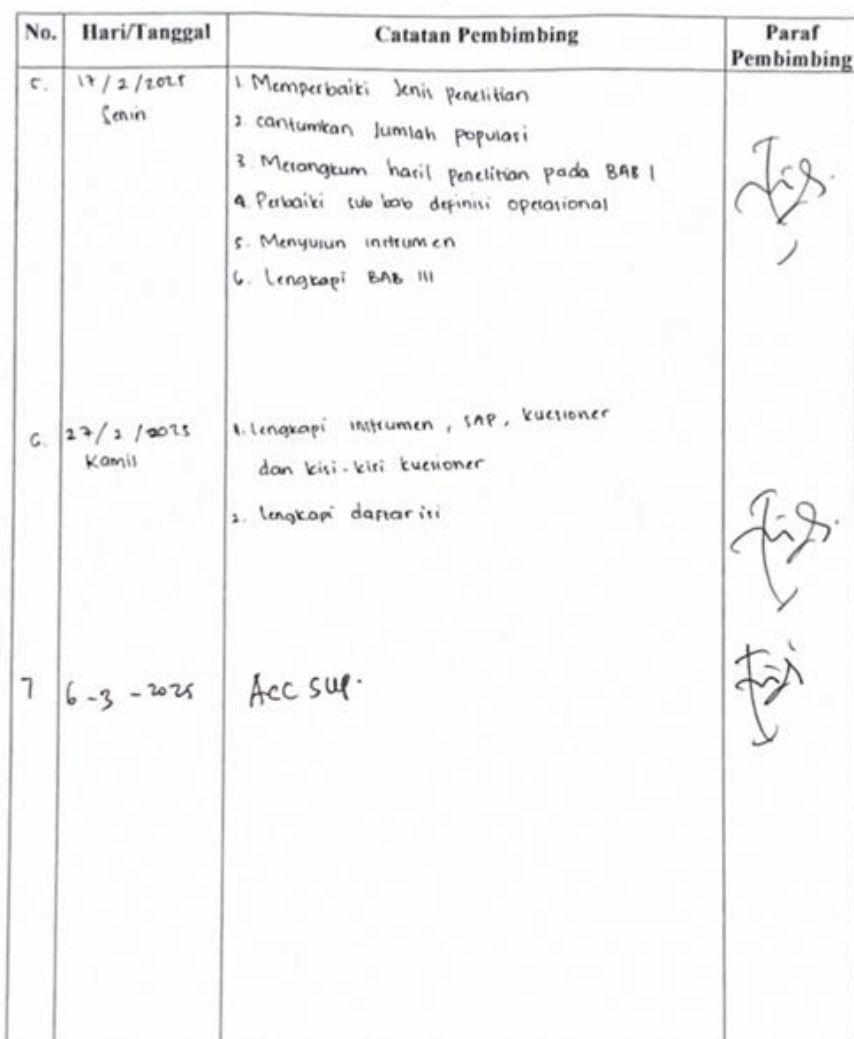 No. Hari/Tanggal Catatan Pembimbing Paraf Pembimbing
5. 17/2/2025 Senin
1. Memperbaiki Jenis penelitian
2. cantumkan Jumlah populasi
3. Merangkum hasil penelitian pada BAB I
4. Perbaiki sub bab definisi operasional
5. Menyusun instrumen
6. Lengkapi BAB III
6. 27/2/2025 Kamis
1. lengkapi instrumen, SAP, kuesioner
dan kisi-kisi kuesioner
2. lengkapi daftar isi
7 6-3-2025 Acc sup.